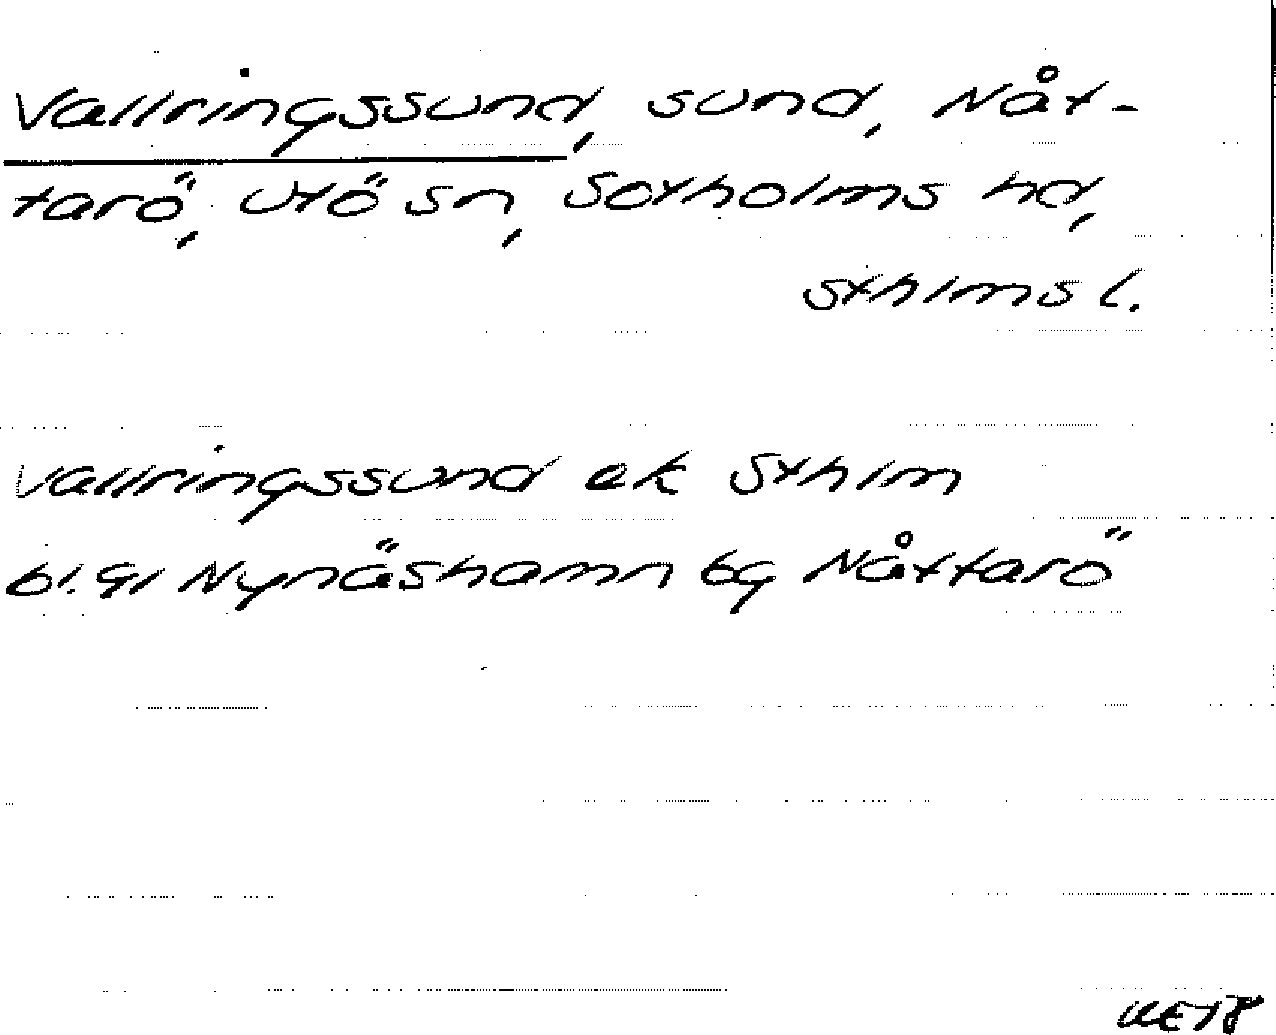 Vallringssund, sund, Nåt-
tarö, Utö sn, Sotholms hd,
Sthlms l.
Vallringssund ek Sthlm
bl. 91 Nynäshamn bg Nåttarö